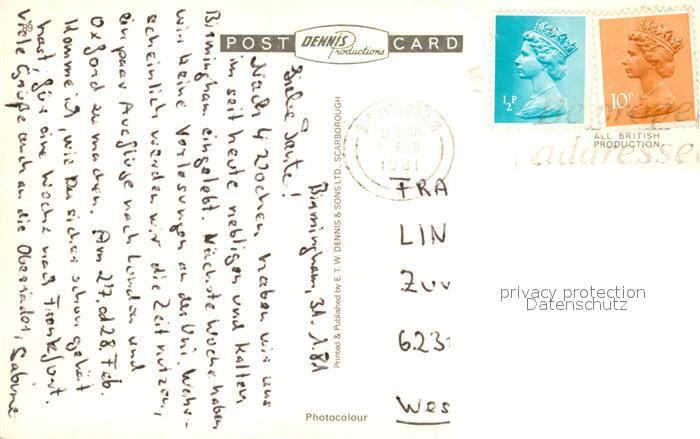 POST DENNIS Productions CARD
Birmingham, 31.1.81
Liebe Tante!
Nach 4 Wochen haben wir uns
im seit heute nebligen und kalten
Birmingham eingelebt. Nächste Woche haben
wir keine Vorlesungen an der Uni. Wahr-
scheinlich werden wir die Zeit nutzen,
ein paar Ausflüge nach London und
Oxford zu machen. Am 27. od 28. Feb.
komme ich, wie Du sicher schon gehört
hast, für eine Woche nach Frankfurt.
Viele Grüße auch an die Sabine
Printed & Published by E. T. W. DENNIS & SONS LTD., SCARBOROUGH
Photocolour
BIRMINGHAM
FEB
1981
½P
10P
addresse
ALL BRITISH
PRODUCTION
FRA
LIN
Zuv
623
Wes
privacy protection
Datenschutz